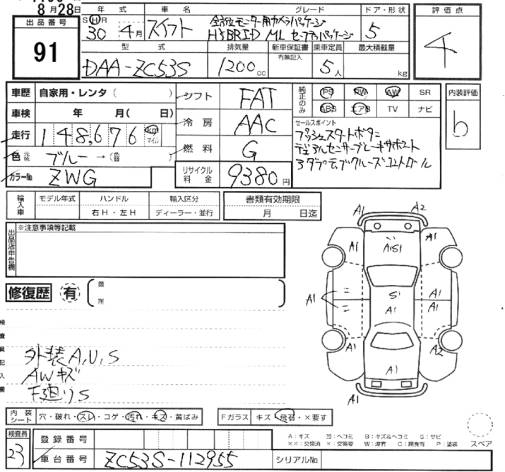 8月28日
出品番号
91
S H R 年式
30年4月
車名
スイフト
グレード
全方位モニター用カメラパッケージ
HYBRID ML セーフティパッケージ
ドア・形状
5
評価点
4
型式
DAA-ZC53S
排気量
1200cc
新車保証書
有
無記入
乗車定員
5人
最大積載量
kg
車歴 自家用・レンタ( )
シフト FAT
車検 年 月( 日)
冷房 AAC
走行 148,676 km マイル
燃料 G
色 ブルー→(替)
カラーNo ZWG
リサイクル料金 9380円
純正のみ PS PW AW SR
ABS エアB TV ナビ
内装評価
b
セールスポイント
プッシュスタートボタン
デュアルセンサーブレーキサポート
アダプティブクルーズコントロール
輸入車
モデル年式 ハンドル 輸入区分
右H・左H ディーラー・並行
書類有効期限
月 日迄
※注意事項等記載
修復歴 有
箇所
外装A,U,S
AWキズ
下廻りS
A1
A2
A1
A1S1
A1
A1
A1
S1
A1
A1
A1
A1
A2
A1
スペア
内装シート 穴・破れ・スレ・コゲ・汚れ・キズ・黄ばみ
Fガラス キズ・飛石・×要す
検査員
23
登録番号
車台番号 ZC53S-112955
シリアルNo